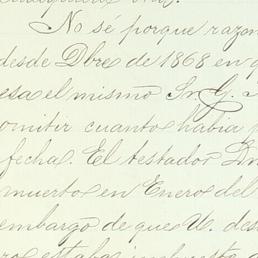 No sé porque razon
desde Dbre de 1868 en q
esa el mismo Sr. G.
omitir cuanto habia
fecha. El testador Dn
muerto en Enero del
embargo de que U. des
estaba